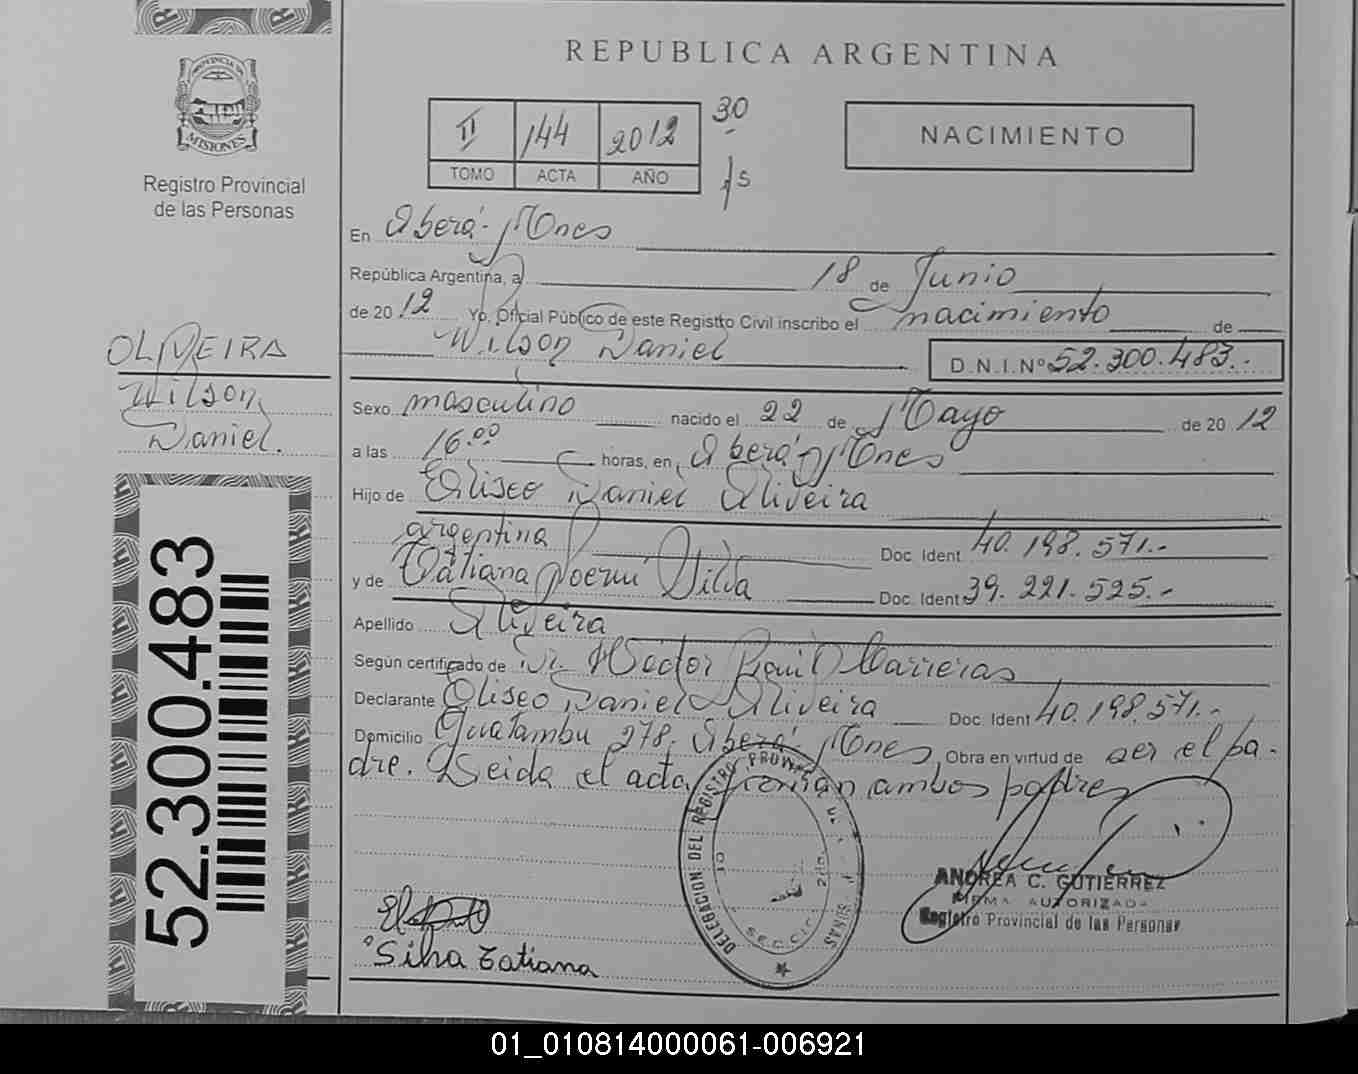 REPUBLICA ARGENTINA
PROVINCIA DE
MISIONES
Registro Provincial
de las Personas
II 144 2012
TOMO ACTA AÑO
30
/s
NACIMIENTO
En Oberá - Mnes
República Argentina, a 18 de Junio
de 2012 Yo, Oficial Público de este Registro Civil inscribo el nacimiento de
Wilson Daniel D.N.I.Nº 52.300.483.-
OLIVEIRA
Wilson
Daniel.
Sexo masculino nacido el 22 de Mayo de 2012
a las 16.00 horas, en Oberá - Mnes
Hijo de Eliseo Daniel Oliveira
argentina Doc. Ident 40.198.571.-
y de Tatiana Noemi Silva Doc. Ident 39.221.525.-
Apellido Oliveira
Según certificado de Dr. Héctor Raúl Carreras
Declarante Eliseo Daniel Oliveira Doc. Ident 40.198.571.-
Domicilio Guatambu 278. Oberá - Mnes, Obra en virtud de ser el pa-
dre. Leida el acta, firman ambos padres
52.300.483
DELEGACION DEL REGISTRO
ANDREA C. GUTIERREZ
FIRMA AUTORIZADA
Registro Provincial de las Personas
Silva Tatiana
01_010814000061-006921